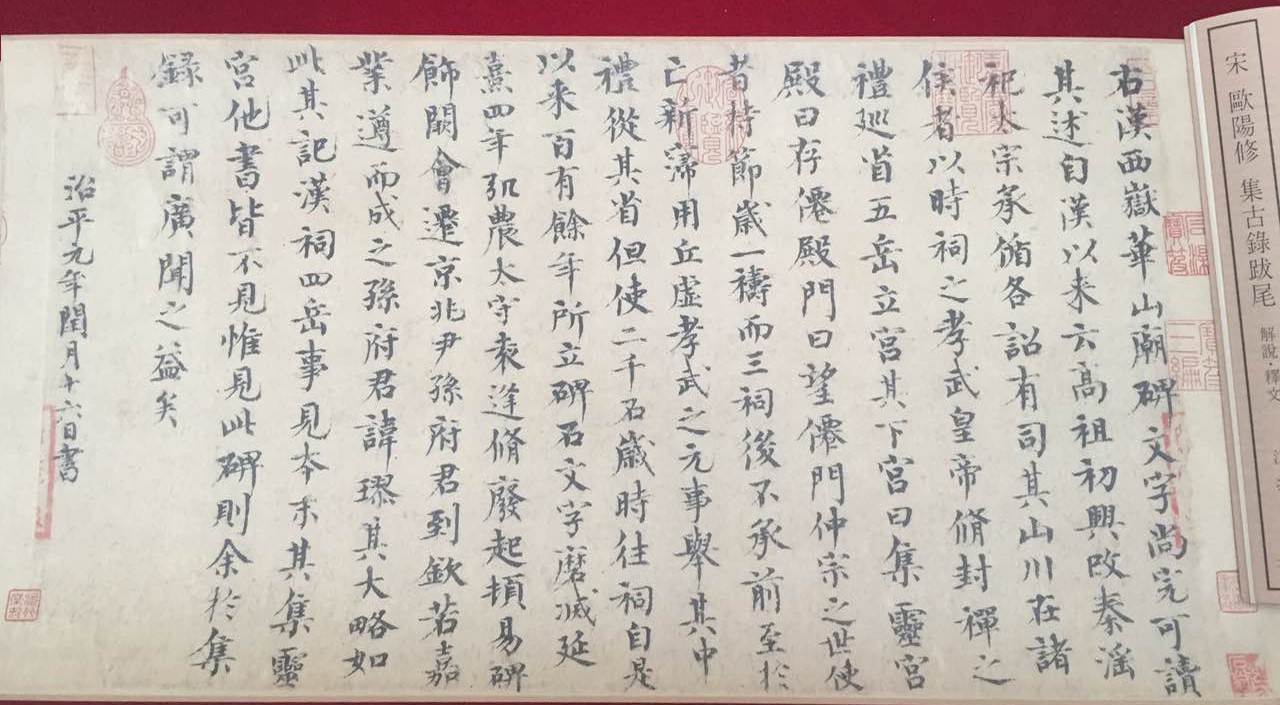 宋 歐陽修 集古錄跋尾 解說・釋文
右漢西嶽華山廟碑文字尚完可讀
其述自漢以来云高祖初興改秦滛
祀太宗承循各詔有司其山川在諸
侯者以時祠之孝武皇帝脩封禪之
禮巡省五岳立宮其下宮曰集靈宮
殿曰存僊殿門曰望僊門仲宗之世使
者持節歲一禱而三祠後不承前至於
亡新寖用丘虛孝武之元事舉其中
禮從其省但使二千石歲時往祠自是
以来百有餘年所立碑石文字磨滅延
熹四年弘農太守袁逢脩廢起頓易碑
飾闕會遷京兆尹孫府君到欽若嘉
業遵而成之孫府君諱璆其大略如
此其記漢祠四岳事見本末其集靈
宮他書皆不見惟見此碑則余於集
録可謂廣聞之益矣
治平元年閏月十六日書